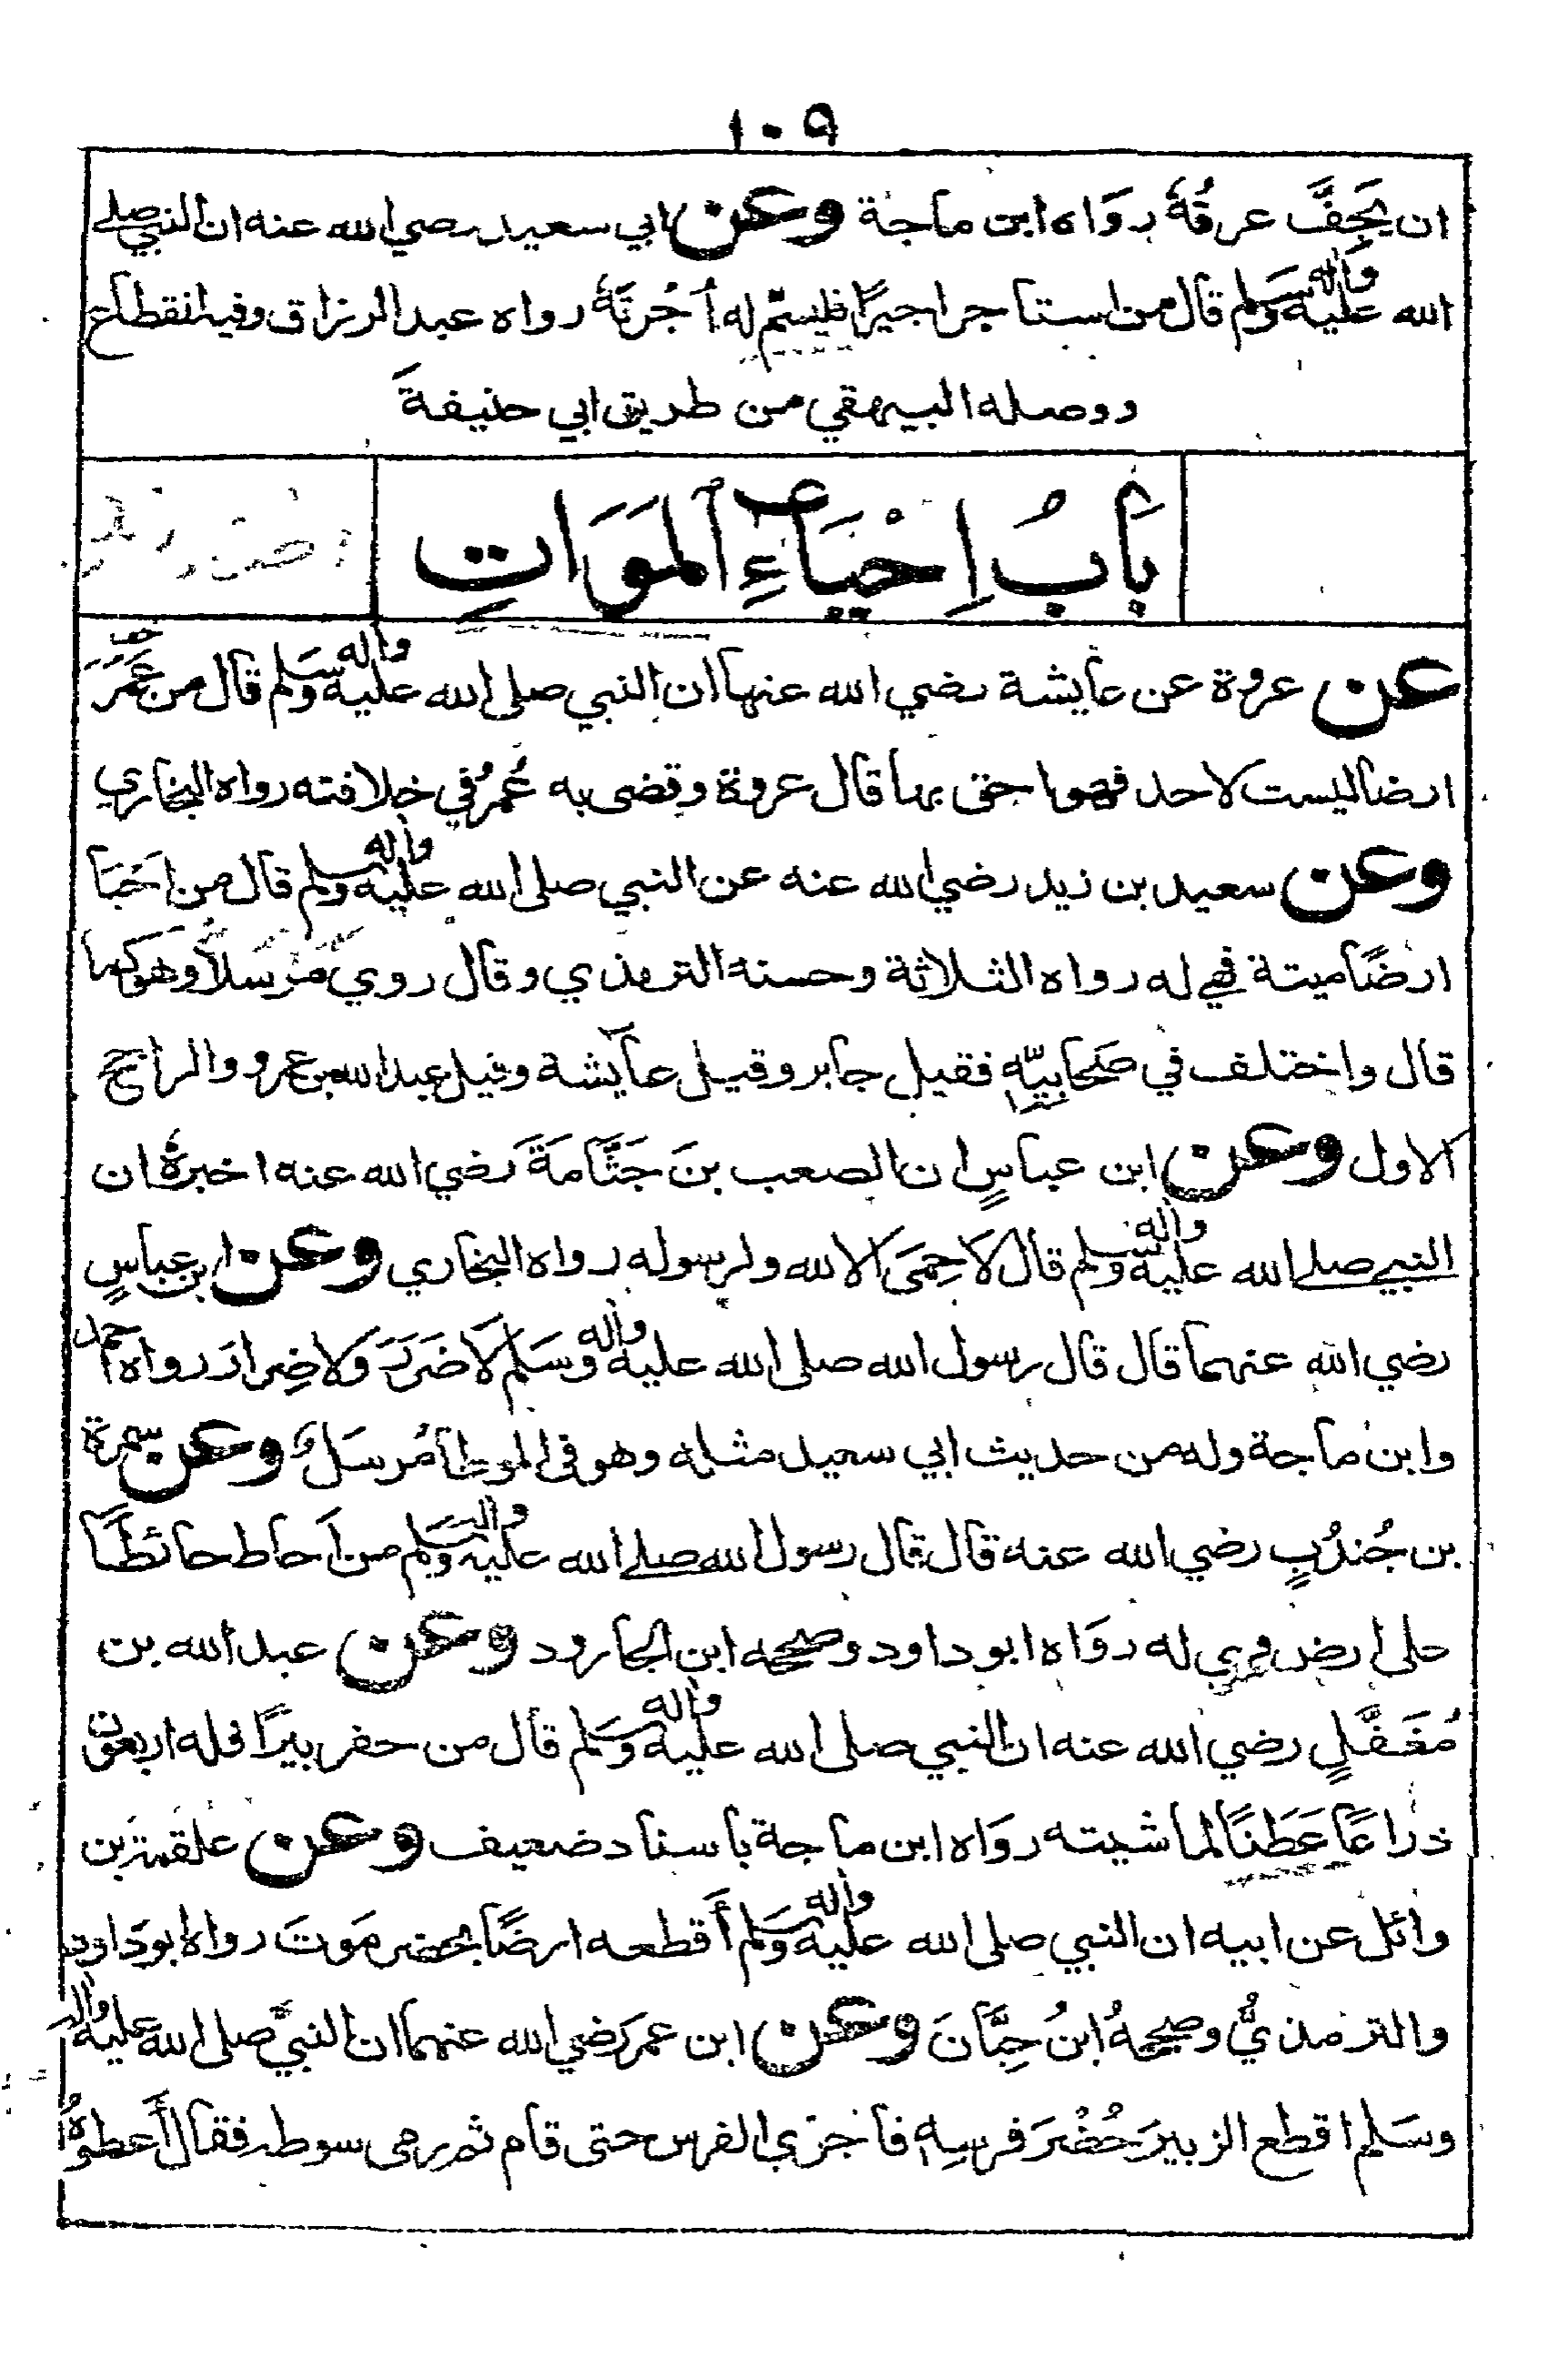 ١٠٩
ان يَجِفَّ عرقُهُ روَاه ابن ماجة وعن ابي سعيد رضي الله عنه ان النبي صلے
الله عليه واله وسَلم قال من استاجر اجيرًا فليسمّ له اُجْرتَهُ رواه عبد الرزاق وفيه انقطاع
ووصله البيهقي من طريق ابي حنيفةَ
بَابُ اِحْيَاءِ المَوَاتِ
عن عروة عن عايشة رضي الله عنها ان النبي صلى الله عليه واله وسَلم قال من عَمَّرَ
ارضا ليست لاحد فهوا حق بها قال عروة وقضى به عُمرُ في خلافته رواه البخاري
وعن سعيد بن زيد رضي الله عنه عن النبي صلى الله عليه واله وسلم قال من احْيَا
ارضًا ميتة فهي له رواه الثلاثة وحسنه الترمذي وقال روي مُرسَلاً وهو كما
قال واختلف في صَحَابيّه فقيل جابر وقيل عايشة وقيل عبد الله بن عمرو والراجح
الاول وعن ابن عباسٍ ان الصعب بنَ جَثَّامَةَ رَضي الله عنه اخبرهُ ان
النبي صلے الله عليه واله وسلم قال لاحِمَى الا لله ولرسوله رواه البخاري وعن ابن عباسٍ
رضي الله عنهما قال قال رسول الله صلى الله عليه واله وسَلم لَا ضَرَرَ وَلا ضِرارَ رواه احمد
وابن ماجة وله من حديث ابي سعيد مثله وهو في الموطا مُرسَلٌ وعن سمرة
بن جُندُبٍ رضي الله عنه قال قال رسول الله صلے الله عليه واله وسلم من اَحاط حائطًا
على ارض فهي له روَاه ابو داود وصححه ابن الجارود وعن عبد الله بن
مُغَفَّلٍ رضي الله عنه ان النبي صلى الله عليه واله وسَلم قال من حفر بيرًا فله اربعون
ذراعًا عَطَنًا لماشيته روَاه ابن ماجة باسناد ضعيف وعن علقمة بن
وائل عن ابيه ان النبي صلى الله عليه واله وسَلم أَقطعه ارضًا بحضرمَوتَ رواه ابو دَاود
والترمذيُّ وصححهُ ابنُ حِبَّانَ وعن ابن عمر رَضي الله عنهما ان النبيَّ صلى الله عليه واله
وسَلم اقطع الزبيرَ حُضْرَ فرسِهِ فاَجرَى الفرس حتى قام ثم رمى سوطه فقال أَعطوهُ